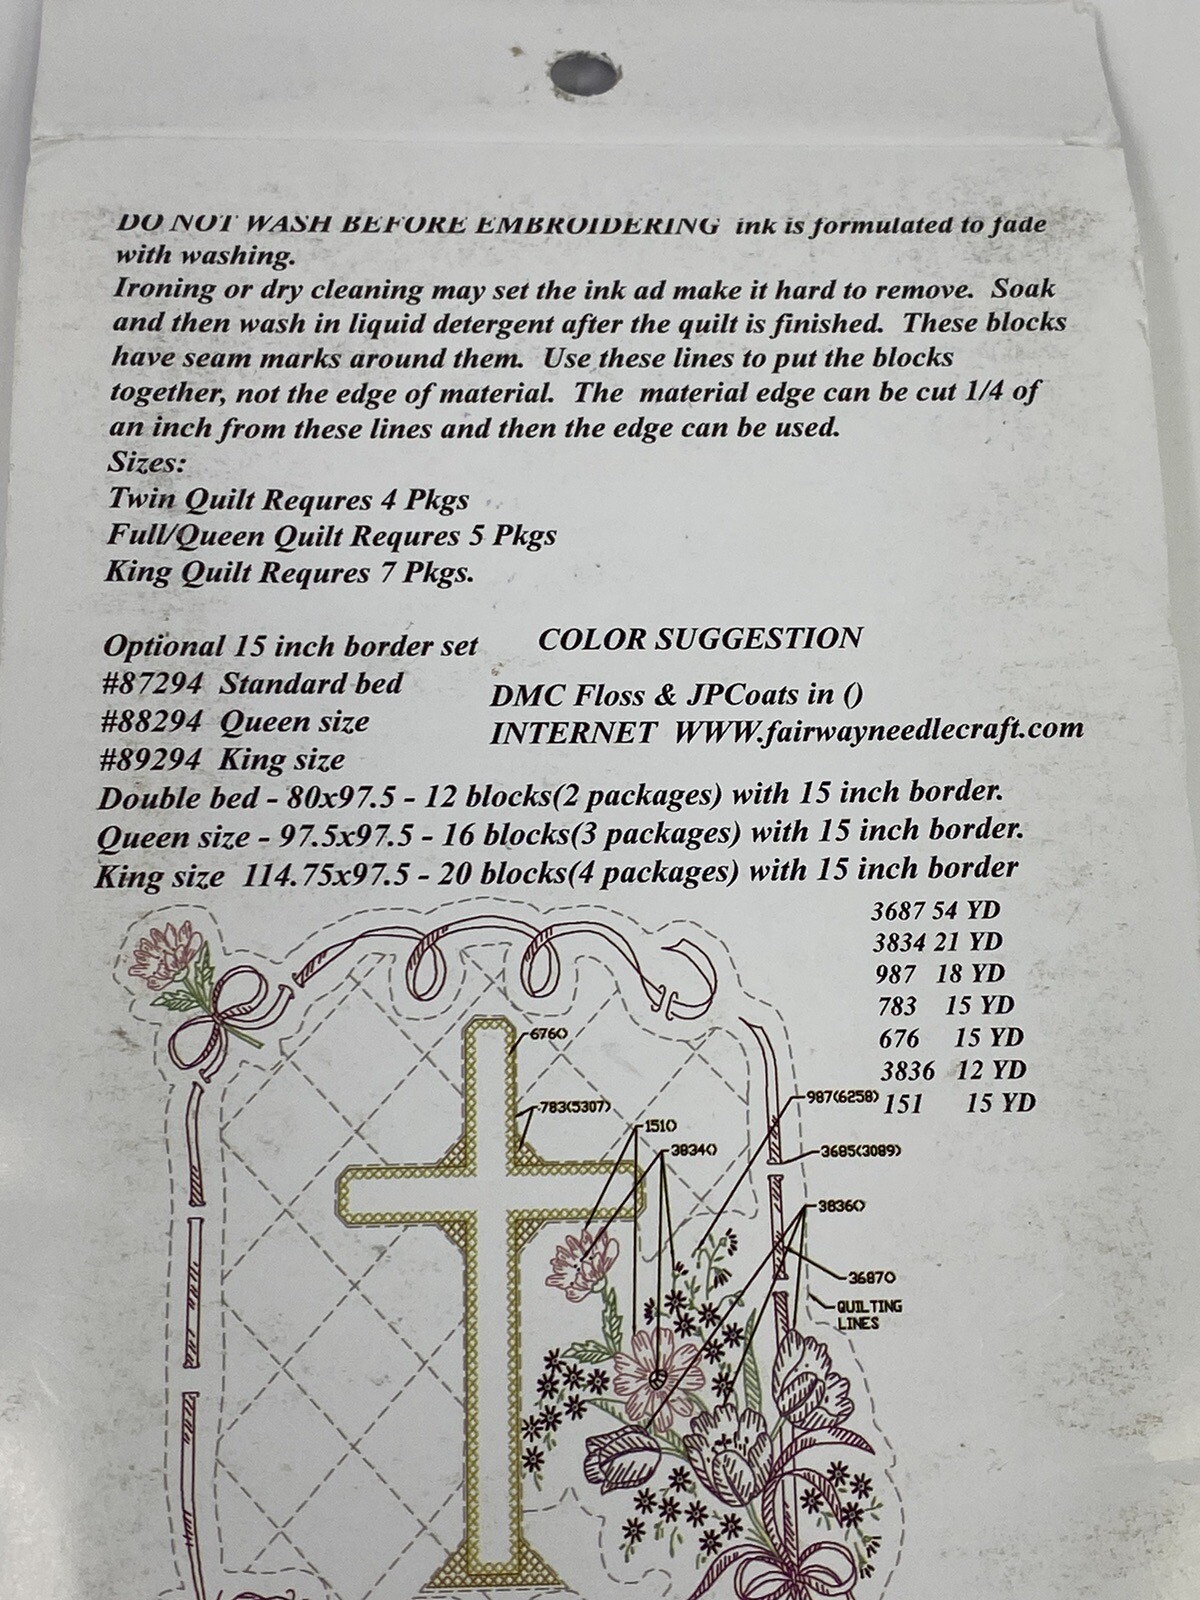 DO NOT WASH BEFORE EMBROIDERING ink is formulated to fade
with washing.
Ironing or dry cleaning may set the ink ad make it hard to remove. Soak
and then wash in liquid detergent after the quilt is finished. These blocks
have seam marks around them. Use these lines to put the blocks
together, not the edge of material. The material edge can be cut 1/4 of
an inch from these lines and then the edge can be used.
Sizes:
Twin Quilt Requres 4 Pkgs
Full/Queen Quilt Requres 5 Pkgs
King Quilt Requres 7 Pkgs.
Optional 15 inch border set
#87294 Standard bed
#88294 Queen size
#89294 King size
COLOR SUGGESTION
DMC Floss & JPCoats in ()
INTERNET WWW.fairwayneedlecraft.com
Double bed - 80x97.5 - 12 blocks(2 packages) with 15 inch border.
Queen size - 97.5x97.5 - 16 blocks(3 packages) with 15 inch border.
King size 114.75x97.5 - 20 blocks(4 packages) with 15 inch border
3687 54 YD
3834 21 YD
987 18 YD
783 15 YD
676 15 YD
3836 12 YD
151 15 YD
676()
783(5307)
151()
3834()
987(6258)
3685(3089)
3836()
3687()
QUILTING
LINES